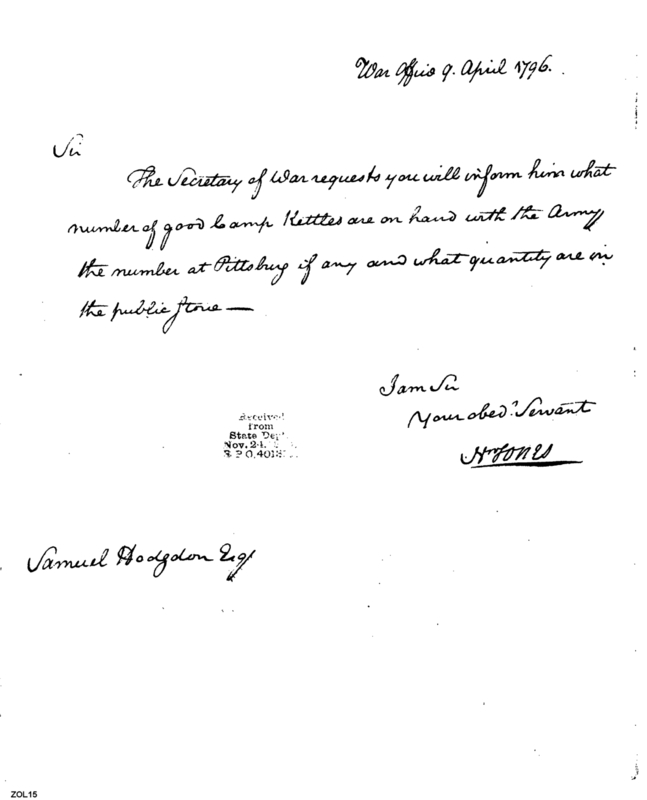 War Office 9. April 1796.
Sir
The Secretary of War requests you will inform him what
number of good Camp Kettles are on hand with the Army
the number at Pittsburg if any and what quantity are in
the public Store —
I am Sir
Your obed.t Servant
Jones
Received
from
State Dep
Nov. 24
Samuel Hodgdon Esq
ZOL15